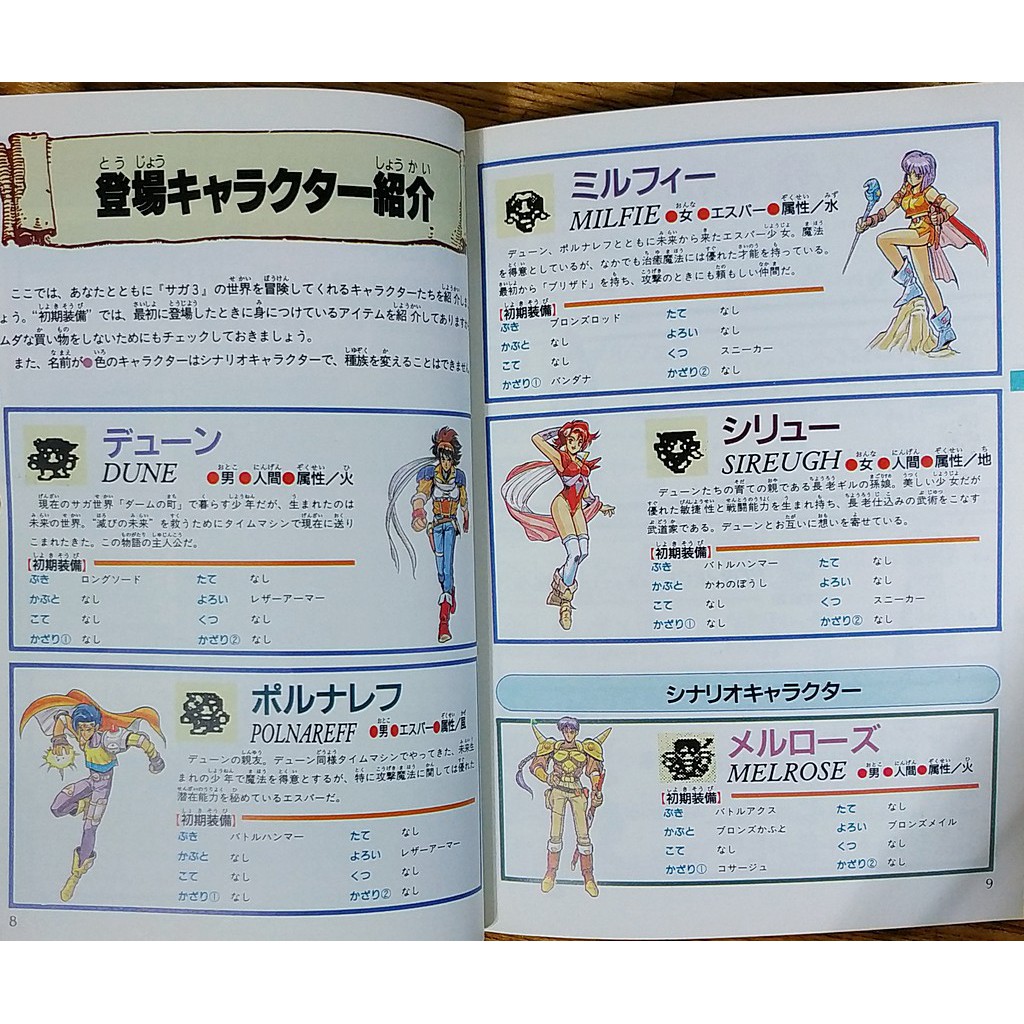 登場キャラクター紹介
ここでは、あなたとともに『サガ3』の世界を冒険してくれるキャラクターたちを紹介しま
ょう。“初期装備”では、最初に登場したときに身につけているアイテムを紹介してありますか
ムダな買い物をしないためにもチェックしておきましょう。
また、名前が●色のキャラクターはシナリオキャラクターで、種族を変えることはできません
デューン
DUNE ●男●人間●属性/火
現在のサガ世界「ダームの町」で暮らす少年だが、生まれたのは
未来の世界。“滅びの未来”を救うためにタイムマシンで現在に送り
こまれたきた。この物語の主人公だ。
【初期装備】
ぶき ロングソード たて なし
かぶと なし よろい レザーアーマー
こて なし くつ なし
かざり① なし かざり② なし
ポルナレフ
POLNAREFF ●男●エスパー●属性/風
デューンの親友。デューン同様タイムマシンでやってきた、未来生
まれの少年で魔法を得意とするが、特に攻撃魔法に関しては優れた
潜在能力を秘めているエスパーだ。
【初期装備】
ぶき バトルハンマー たて なし
かぶと なし よろい レザーアーマー
こて なし くつ なし
かざり① なし かざり② なし
8
ミルフィー
MILFIE ●女●エスパー●属性/水
デューン、ポルナレフとともに未来から来たエスパー少女。魔法
を得意としているが、なかでも治癒魔法には優れた才能を持っている。
最初から「ブリザド」を持ち、攻撃のときにも頼もしい仲間だ。
【初期装備】
ぶき ブロンズロッド たて なし
かぶと なし よろい なし
こて なし くつ スニーカー
かざり① バンダナ かざり② なし
シリュー
SIREUGH ●女●人間●属性/地
デューンたちの育ての親である長老ギルの孫娘。美しい少女だが
優れた敏捷性と戦闘能力を生まれ持ち、長老仕込みの武術をこなす
武道家である。デューンとお互いに想いを寄せている。
【初期装備】
ぶき バトルハンマー たて なし
かぶと かわのぼうし よろい なし
こて なし くつ スニーカー
かざり① なし かざり② なし
シナリオキャラクター
メルローズ
MELROSE ●男●人間●属性/火
【初期装備】
ぶき バトルアクス たて なし
かぶと ブロンズかぶと よろい ブロンズメイル
こて なし くつ なし
かざり① コサージュ かざり② なし
9